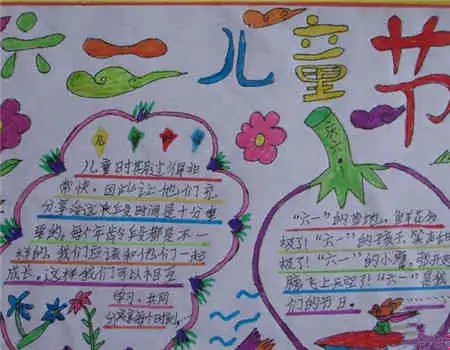 六一儿童节
庆六一
儿童时期过得非
常快，因此让她们充
分享洛这次段时间是十分重
要的，每个年龄段都是不一
样的，我们应该和他们一起
成长，这样我们可以相互
学习，共同
分享每个时刻
“六一”的
极了！“六一”的孩子，笑声
极了！“六一”的小鹰，张开
腾飞上天空了！“六一”是我
们的节日。